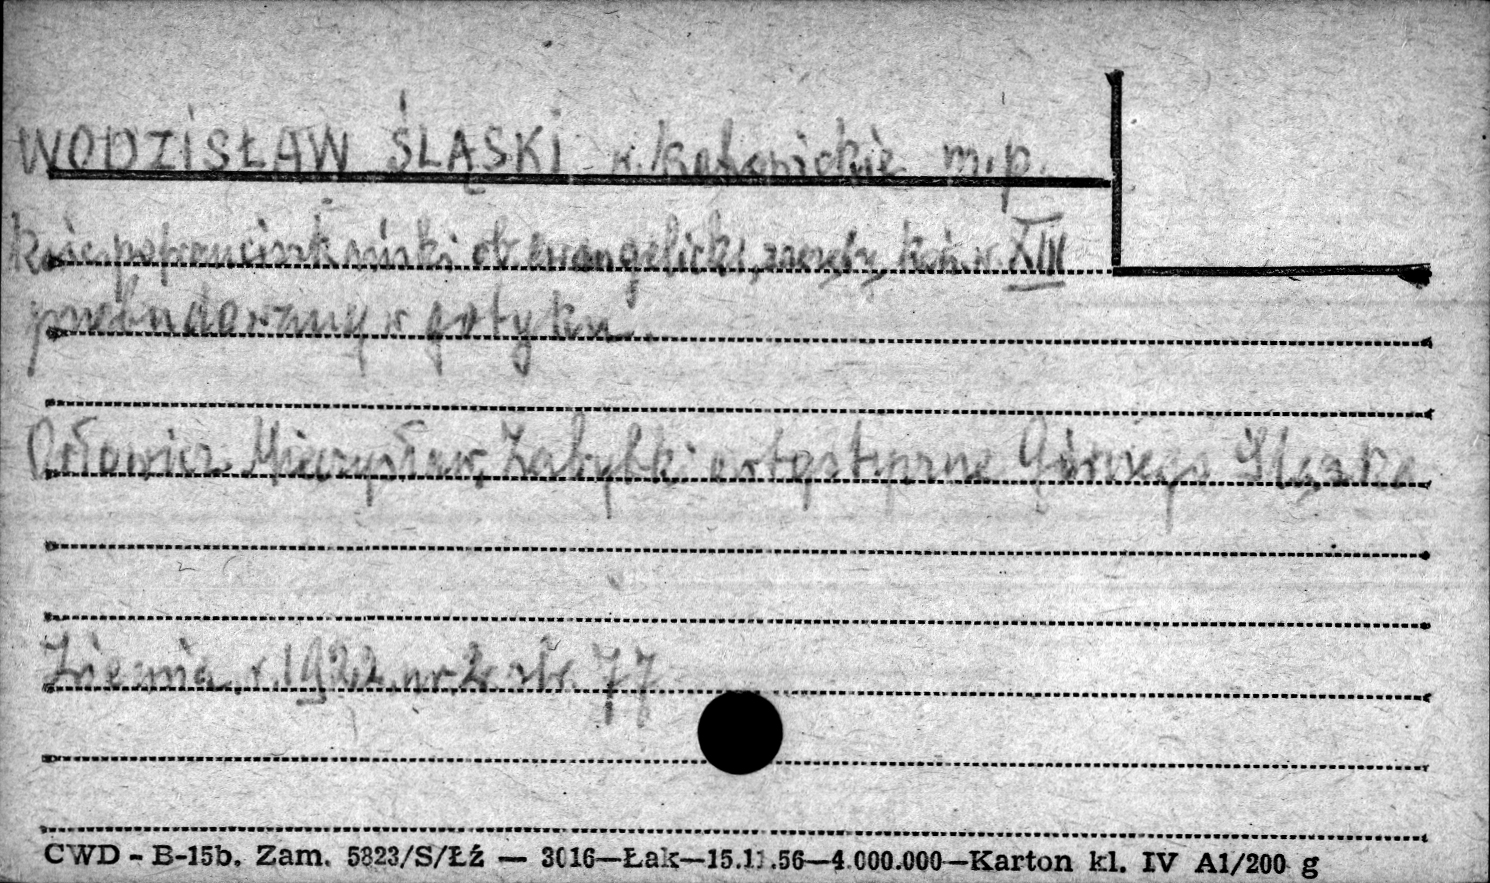 WODZISŁAW ŚLĄSKI w. katowickie m.p.
kośc. pofranciszkański ob. ewangelicki, zaczęty kon. w. XIII
przebudowany w gotyku.
Orłowicz Mieczysław, Zabytki artystyczne Górnego Śląska
Ziemia r. 1922 nr 2. str. 77
CWD - B-15b. Zam. 5823/S/Łź — 3016—Łak—15.11.56—4.000.000—Karton kl. IV A1/200 g